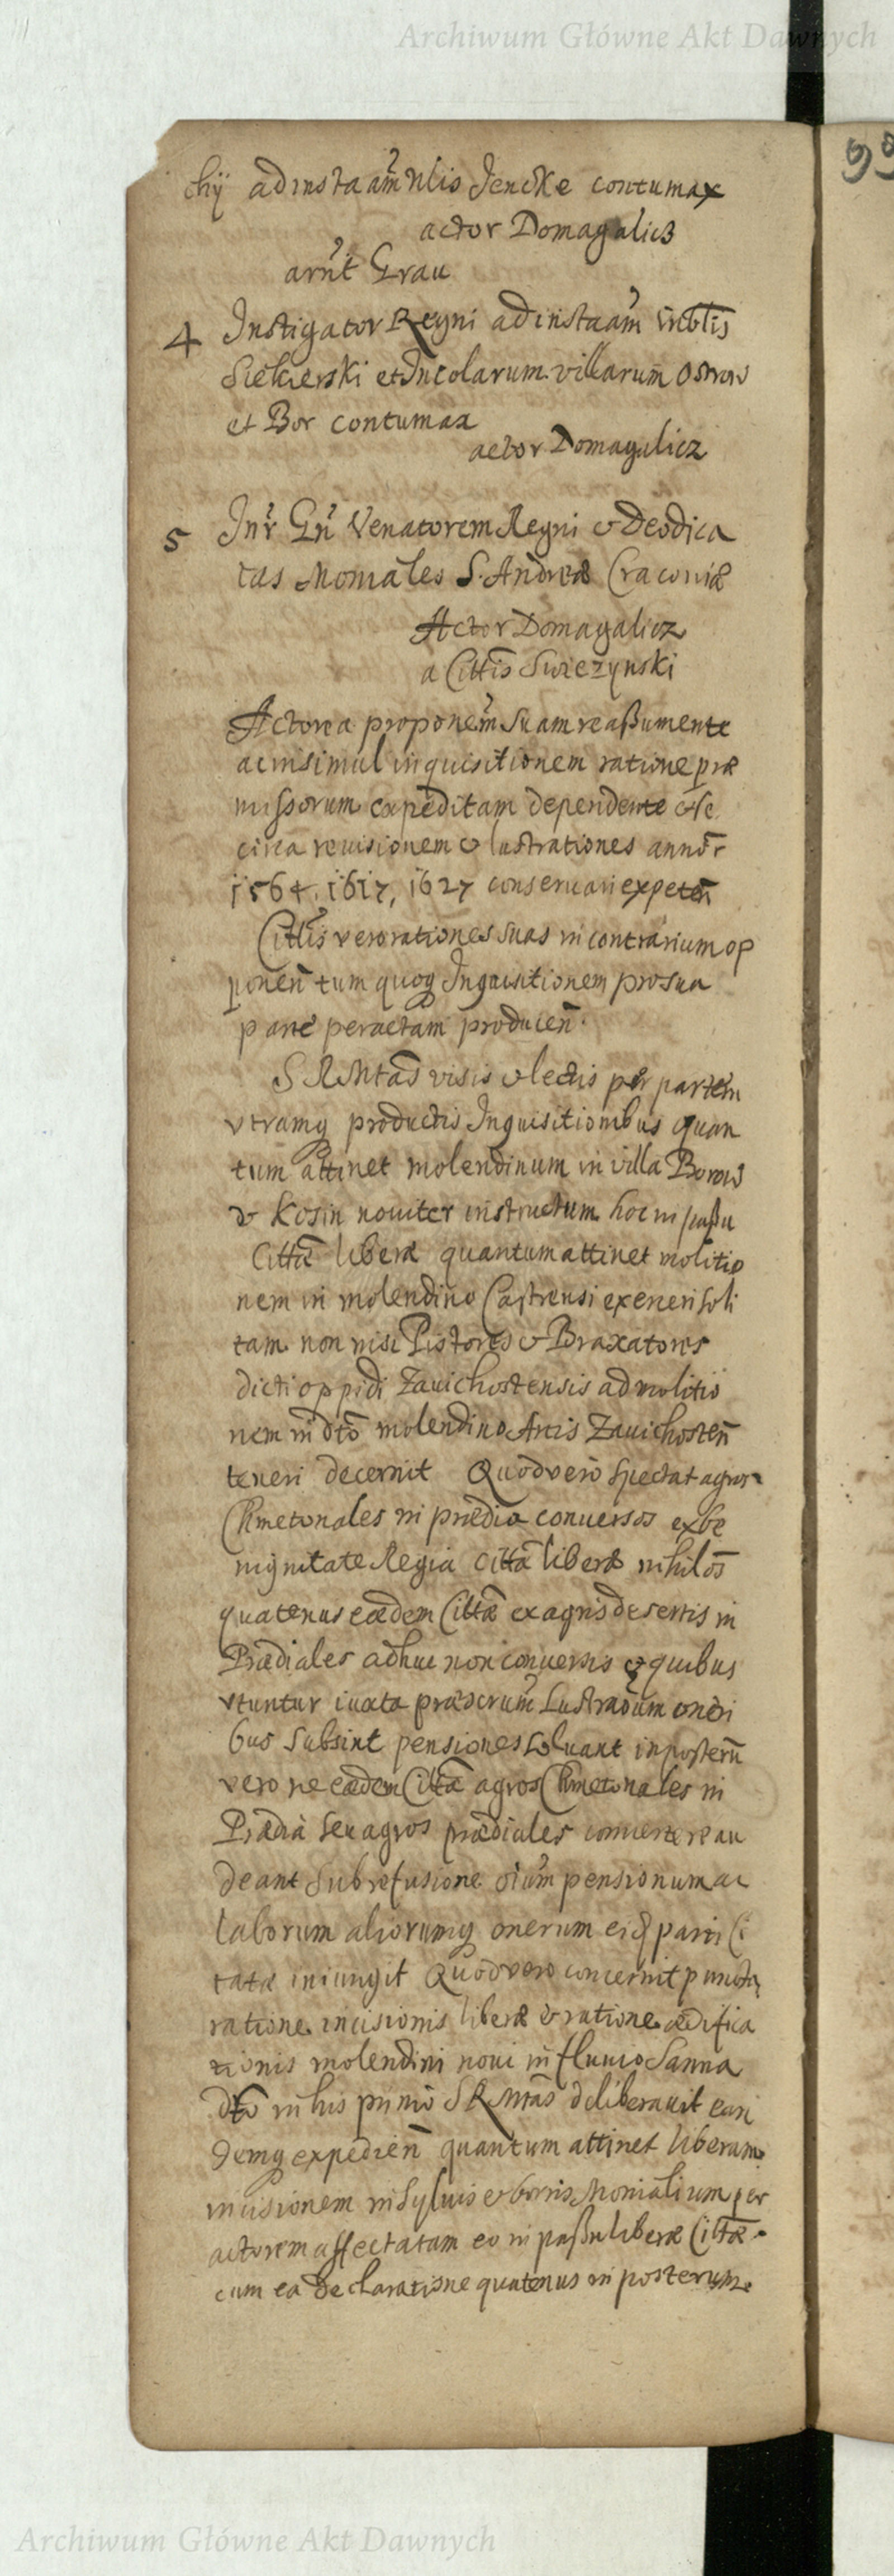 Archiwum Główne Akt Dawnych
99
chÿ ad instaam Nlis Jencke contumax
actor Domagalicz
arnt Grau
4 Instigator Regni ad instaam Vrblis
Siekierski et Incolarum villarum Ostrow
et Bor contumax
actor Domagalicz
5 Inr Gn Venatorem Regni & Deodica
tas Moniales S. Andreæ Cracoviæ
Actor Domagalicz
a Cittis Swiezynski
Actorea proponem suam reassumente
ac insimul inquisitionem ratione præ
missorum expeditam dependente &c
circa revisionem & lustrationes annor
1564. 1617, 1627 conservari expeten
Cittis vero rationes suas in contrarium op
ponen tum quoq Inquisitionem pro sua
parte peractam producen.
S R Mtas visis & lectis per partem
vtramq productis Inquisitionibus quan
tum attinet molendinum in villa Borow
& Kosin noviter instructum hoc in passu
Cittæ liberæ quantum attinet molitio
nem in molendino Castrensi exerceri soli
tam non nisi Pistores & Braxatores
dicti oppidi Zavichostensis ad molitio
nem in dto molendino Arcis Zavichosten
teneri decernit Quod vero spectat agros
Cmetonales in prædia conversos ex be
nignitate Regia Cittæ liberæ nihilos
quatenus eædem Cittæ ex agris desertis in
Prædiales adhuc non conversis & quibus
vtuntur iuxta præscrum Lustraoum oneri
bus subsint pensiones solvant in posterum
vero ne eædem Cittæ agros Cmetonales in
Prædia seu agros prædiales convertere au
deant sub refusione oium pensionum ac
laborum aliorumq onerum eid parti Ci
tatæ iniungit Quod vero concernit puncta
ratione incisionis liberæ & ratione ædifica
tionis molendini novi in fluvio Sanna
dto in his primo S R Mtas deliberavit ean
demq expedien quantum attinet liberam
incisionem in sylvis & borris Monialium per
actorem affectatam eo in passu liberæ Cittæ
cum ea declaratione quatenus in posterum
Archiwum Główne Akt Dawnych